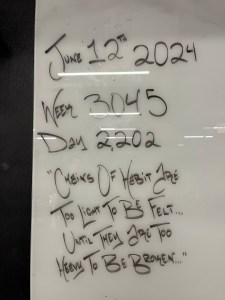 June 12th 2024
Week 304.5
Day 2202
"Chains Of Habit Are
Too Light To Be Felt...
Until They Are Too
Heavy To Be Broken..."